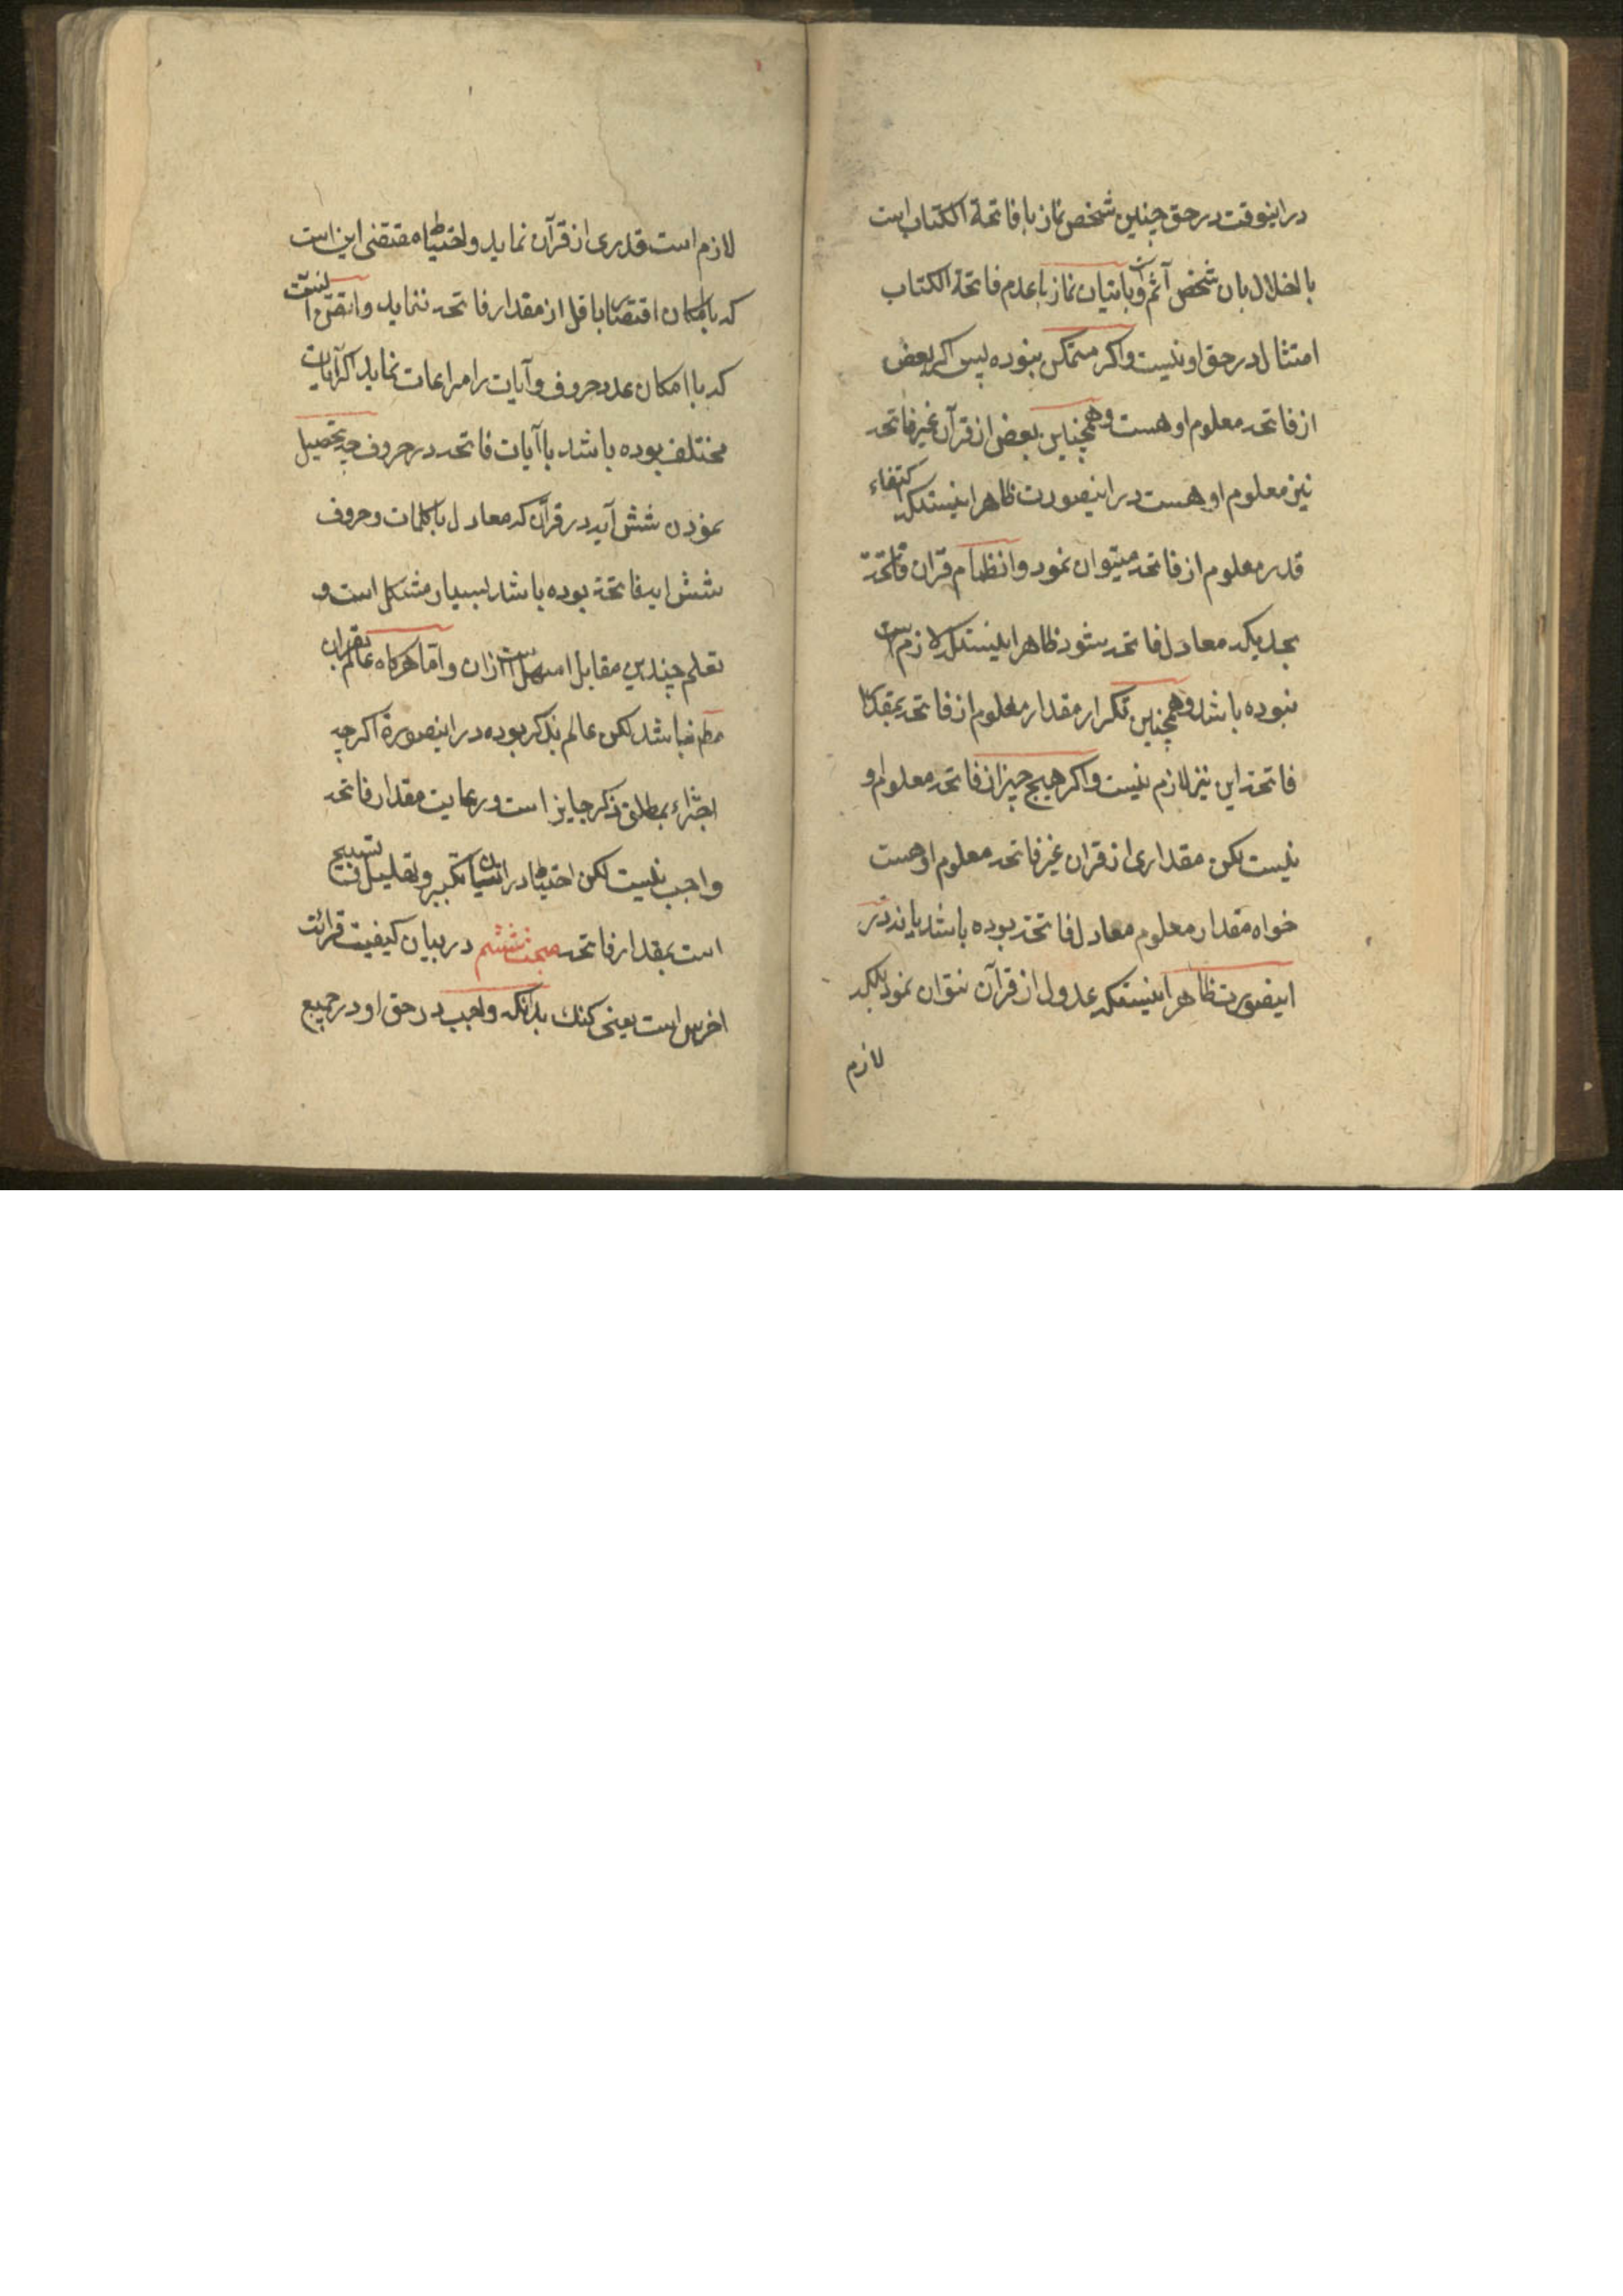 در اینوقت در حق چنین شخص نماز با فاتحة الکتاب است
با اخلال بان شخص آثم است و باتیان نماز با عدم فاتحة الکتاب
امتثال در حق او نیست و اکر متمکن نبوده پس اکر بعض
از فاتحه معلوم او هست و همچنین بعض از قرآن غیر فاتحه
نیز معلوم او هست در اینصورت ظاهر اینستکه اکتفاء
قدر معلوم از فاتحه میتوان نمود و انظمام قران فاتحة
بحدیکه معادل فاتحه شود ظاهر اینستکه لازم است
نبوده باشد و همچنین تکرار مقدار معلوم از فاتحه بمقدار
فاتحه این نیز لازم نیست و اکر هیچ چیز از فاتحه معلوم او
نیست لکن مقداری از قران غیر فاتحه معلوم او هست
خواه مقدار معلوم معادل فاتحه بوده باشد یا نه در
اینصورت ظاهر اینستکه عدول از قرآن نتوان نمود بلکه
لازم
لازم است قدری از قرآن نماید و احتیاط مقتضی این است
که با امکان اقتصار باقل از مقدار فاتحه ننماید و انقص است
که با امکان عدد حروف و آیات را مراعات نماید اکر آیات
مختلف بوده باشد با آیات فاتحه در حروف چه تحصیل
نمودن شش آیه در قرآن که معادل با کلمات و حروف
شش ایه فاتحة بوده باشد بسیار مشکل است و
تعلم چندین مقابل اسهل است از ان و اما هرکاه عالم بقران
مطم نباشد لکن عالم بذکر بوده در اینصورة اکر چه
اجتزاء بمطلق ذکر جایز است و رعایت مقدار فاتحه
واجب نیست لکن احتیاط در اتیان تکبیر و تهلیل و تسبیح
است بمقدار فاتحه مبحث ششم در بیان کیفیت قرائت
اخرس است یعنی کنك بدانکه واجب در حق او در جمیع